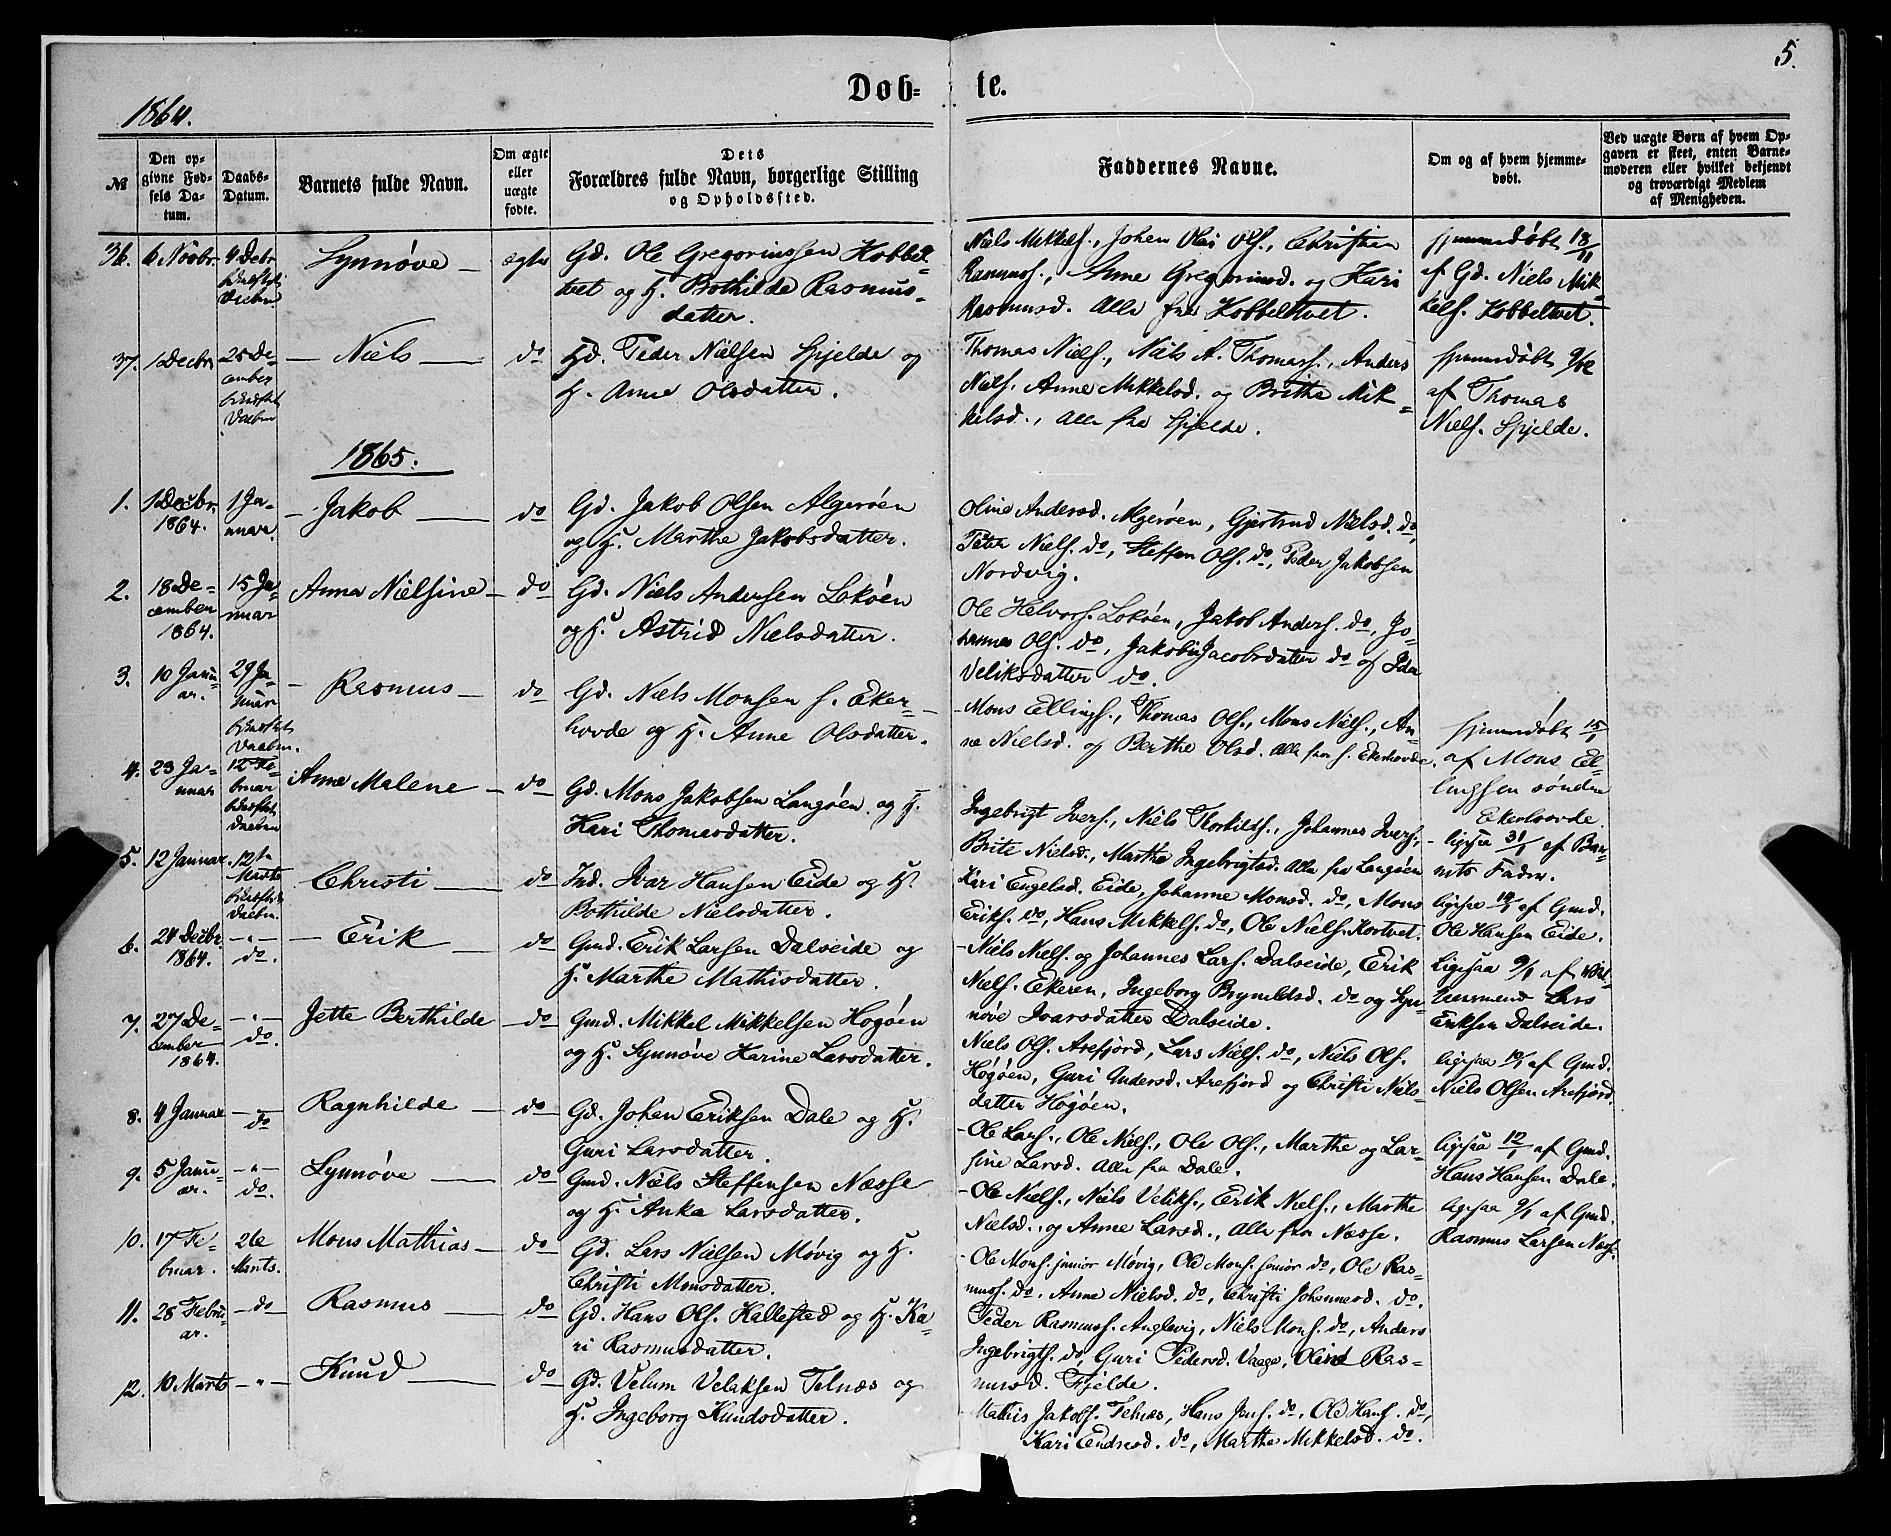 5.
Døb- te.
1864.
№
Den op-
givne Fød-
sels Da-
tum.
Daabs-
Datum.
Barnets fulde Navn.
Om ægte
eller
uægte
fødte.
Dets
Forældres fulde Navn, borgerlige Stilling
og Opholdssted.
Faddernes Navne.
Om og af hvem hjemme-
døbt.
Ved uægte Børn af hvem Op-
gaven er skeet, enten Barne-
moderen eller hvilket bekjendt
og troværdigt Medlem
af Menigheden.
36. 6 Novbr. 4 Debr. Synnøve ægte
Gd. Ole Gregoriussen Kobbel-
tvet og H. Bothilde Rasmus-
datter.
Niels Mikkels., Johan Olai Ols., Christien
Rasmuss., Anne Gregoriusd. og Kari
Rasmusd. Alle fra Kobbeltvet.
hjemmedøbt 18/11
af Gd. Niels Mik-
kels. Kobbeltvet.
37. 1 Decbr. 25 De-
cember
Niels do
Gd. Peder Nielsen Spjelde og
H. Anne Olsdatter.
Thomas Niels., Niels A. Thomass., Anders
Niels. Anne Mikkelsd. og Brithe Mik-
kelsd., alle fra Spjelde.
hjemmedøbt 9/12
af Thomas
Niels. Spjelde.
1865.
1. 1 Decbr.
1864.
1 Ja-
nuar.
Jakob do
Gd. Jakob Olsen Algerøen
og H. Marthe Jakobsdatter.
Oline Andersd. Algerøen, Gjertrud Nielsd. do,
Peter Niels. do, Steffen Ols. do, Peder Jakobsen
Nordvig.
2. 18 De-
cember
1864.
15 Ja-
nuar
Anna Nielsine do
Gd. Niels Andersen Lokøen
og H. Astrid Nielsdatter.
Ole Helvors. Lokøen, Jakob Anders. do, Jo-
hannes Ols. do, Jakobin Jacobsdatter do og Ida
Veliksdatter do.
3. 10 Janu-
ar.
29 Ja-
nuar
Rasmus do
Gd. Niels Monsen s. Eker-
hovde og H. Anne Olsdatter.
Mons Ellings., Thomas Ols., Mons Niels., An-
ne Nielsd. og Berthe Olsd. alle fra s. Ekerhovde.
hjemmedøbt 15/1
af Mons El-
lingsen søndre
Ekerhovde.
4. 23 Ja-
nuar
12 Fe-
bruar
Anne Malene do
Gd. Mons Jakobsen Langøen og H.
Kari Thomasdatter.
Ingebrigt Ivers., Niels Thorkilds., Johannes Ivers.,
Brite Nielsd., Marthe Ingebrigtsd. alle fra Langøen
ligesaa 31/1 af Bar-
nets Fader.
5. 12 Januar 12te
Marts
Christi do
Ind. Ivar Hansen Eide og H.
Bothilde Nielsdatter.
Kari Engelsd. Eide, Johanne Monsd. do, Mons
Eriks. do, Hans Mikkels. do, Ole Niels. Kortvet.
ligesaa af Gmd.
Ole Hansen Eide.
6. 24 Decbr.
1864.
do.
Erik do
Gmd. Erik Larsen Dalseide og
H. Marthe Mathisdatter.
Niels Niels. og Johannes Lars. Dalseide, Erik
Niels. Ekeren, Ingeborg Brynildsd. do og Syn-
nøve Ivarsdatter Dalseide.
ligesaa 9/1 af
Lars
Eriksen Dalseide.
7. 27 De-
cember
1864.
do.
Jette Berthilde do
Gmd. Mikkel Mikkelsen Høgøen
og H. Synnøve Karine Larsdatter.
Niels Ols. Arefjord, Lars Niels. do, Niels Ols.
Høgøen, Guri Andersd. Arefjord og Christi Niels-
datter Høgøen.
ligesaa 10/1 af Gmd.
Niels Olsen Arefjord.
8. 4 Januar do
Ragnhilde do
Gd. Johan Eriksen Dale og H.
Guri Larsdatter.
Ole Lars., Ole Niels., Ole Ols., Marthe og Lar-
sine Larsd. alle fra Dale.
ligesaa 12/1 af Gmd.
Hans Hansen Dale.
9. 5 Janu-
ar.
do.
Synnøve do
Gmd. Niels Steffensen Næsse
og H. Anka Larsdatter.
Ole Niels., Niels Veliks., Erik Niels., Marthe
Nielsd. og Anne Larsd., alle fra Næsse.
ligesaa 9/1 af Gmd.
Rasmus Larsen Næss.
10. 17 Fe-
bruar.
26te
Marts.
Mons Mathias do
Gd. Lars Nielsen Møvig og H.
Christi Monsdatter.
Ole Mons. junior Møvig, Ole Mons. senior do, Ole Ras-
muss. do, Anne Nielsd. do, Christi Johannesd. do.
11. 28 Febru-
ar.
do
Rasmus do
Gd. Hans Ols. Hallested og H. Ka-
ri Rasmusdatter.
Peder Rasmuss. Anglevig, Niels Mons. do, Anders
Ingebrigts. do, Guri Pedersd. Vaage, Oline Ras-
musd. Fjelde.
12. 10 Marts
Knud do
Gd. Velum Velaksen Telnæs og
H. Ingeborg Knudsdatter.
Mathis Jakobs. Telnæs, Hans Jens. do, Ole Hans. do,
Kari Endresd. do, Marthe Mikkelsd. do.